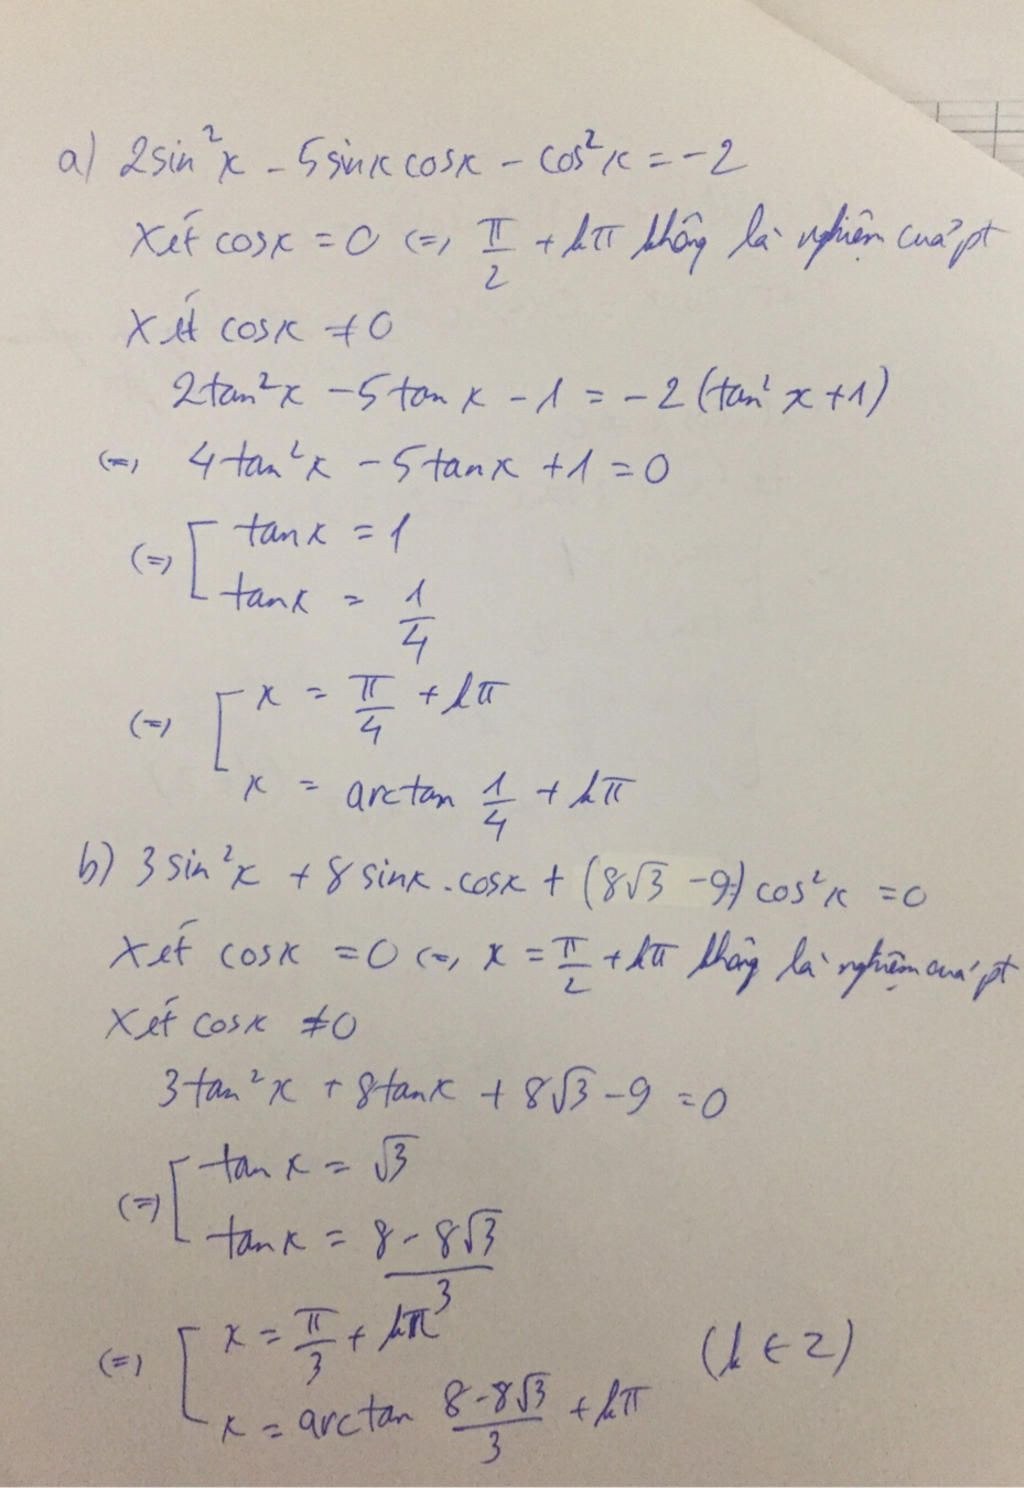 a) 2sin²x - 5sinx cosx - cos²x = -2
Xét cosx = 0 (=) π/2 + kπ không là nghiệm của pt
Xét cosx ≠ 0
2tan²x - 5tanx - 1 = -2(tan²x + 1)
(=) 4tan²x - 5tanx + 1 = 0
(=) [ tanx = 1
tanx = 1/4
(=) [ x = π/4 + kπ
x = arctan 1/4 + kπ
b) 3sin²x + 8sinx.cosx + (8√3 - 9) cos²x = 0
Xét cosx = 0 (=) x = π/2 + kπ không là nghiệm của pt
Xét cosx ≠ 0
3tan²x + 8tanx + 8√3 - 9 = 0
(=) [ tanx = √3
tanx = (8 - 8√3)/3
(=) [ x = π/3 + kπ (k ∈ Z)
x = arctan (8 - 8√3)/3 + kπ